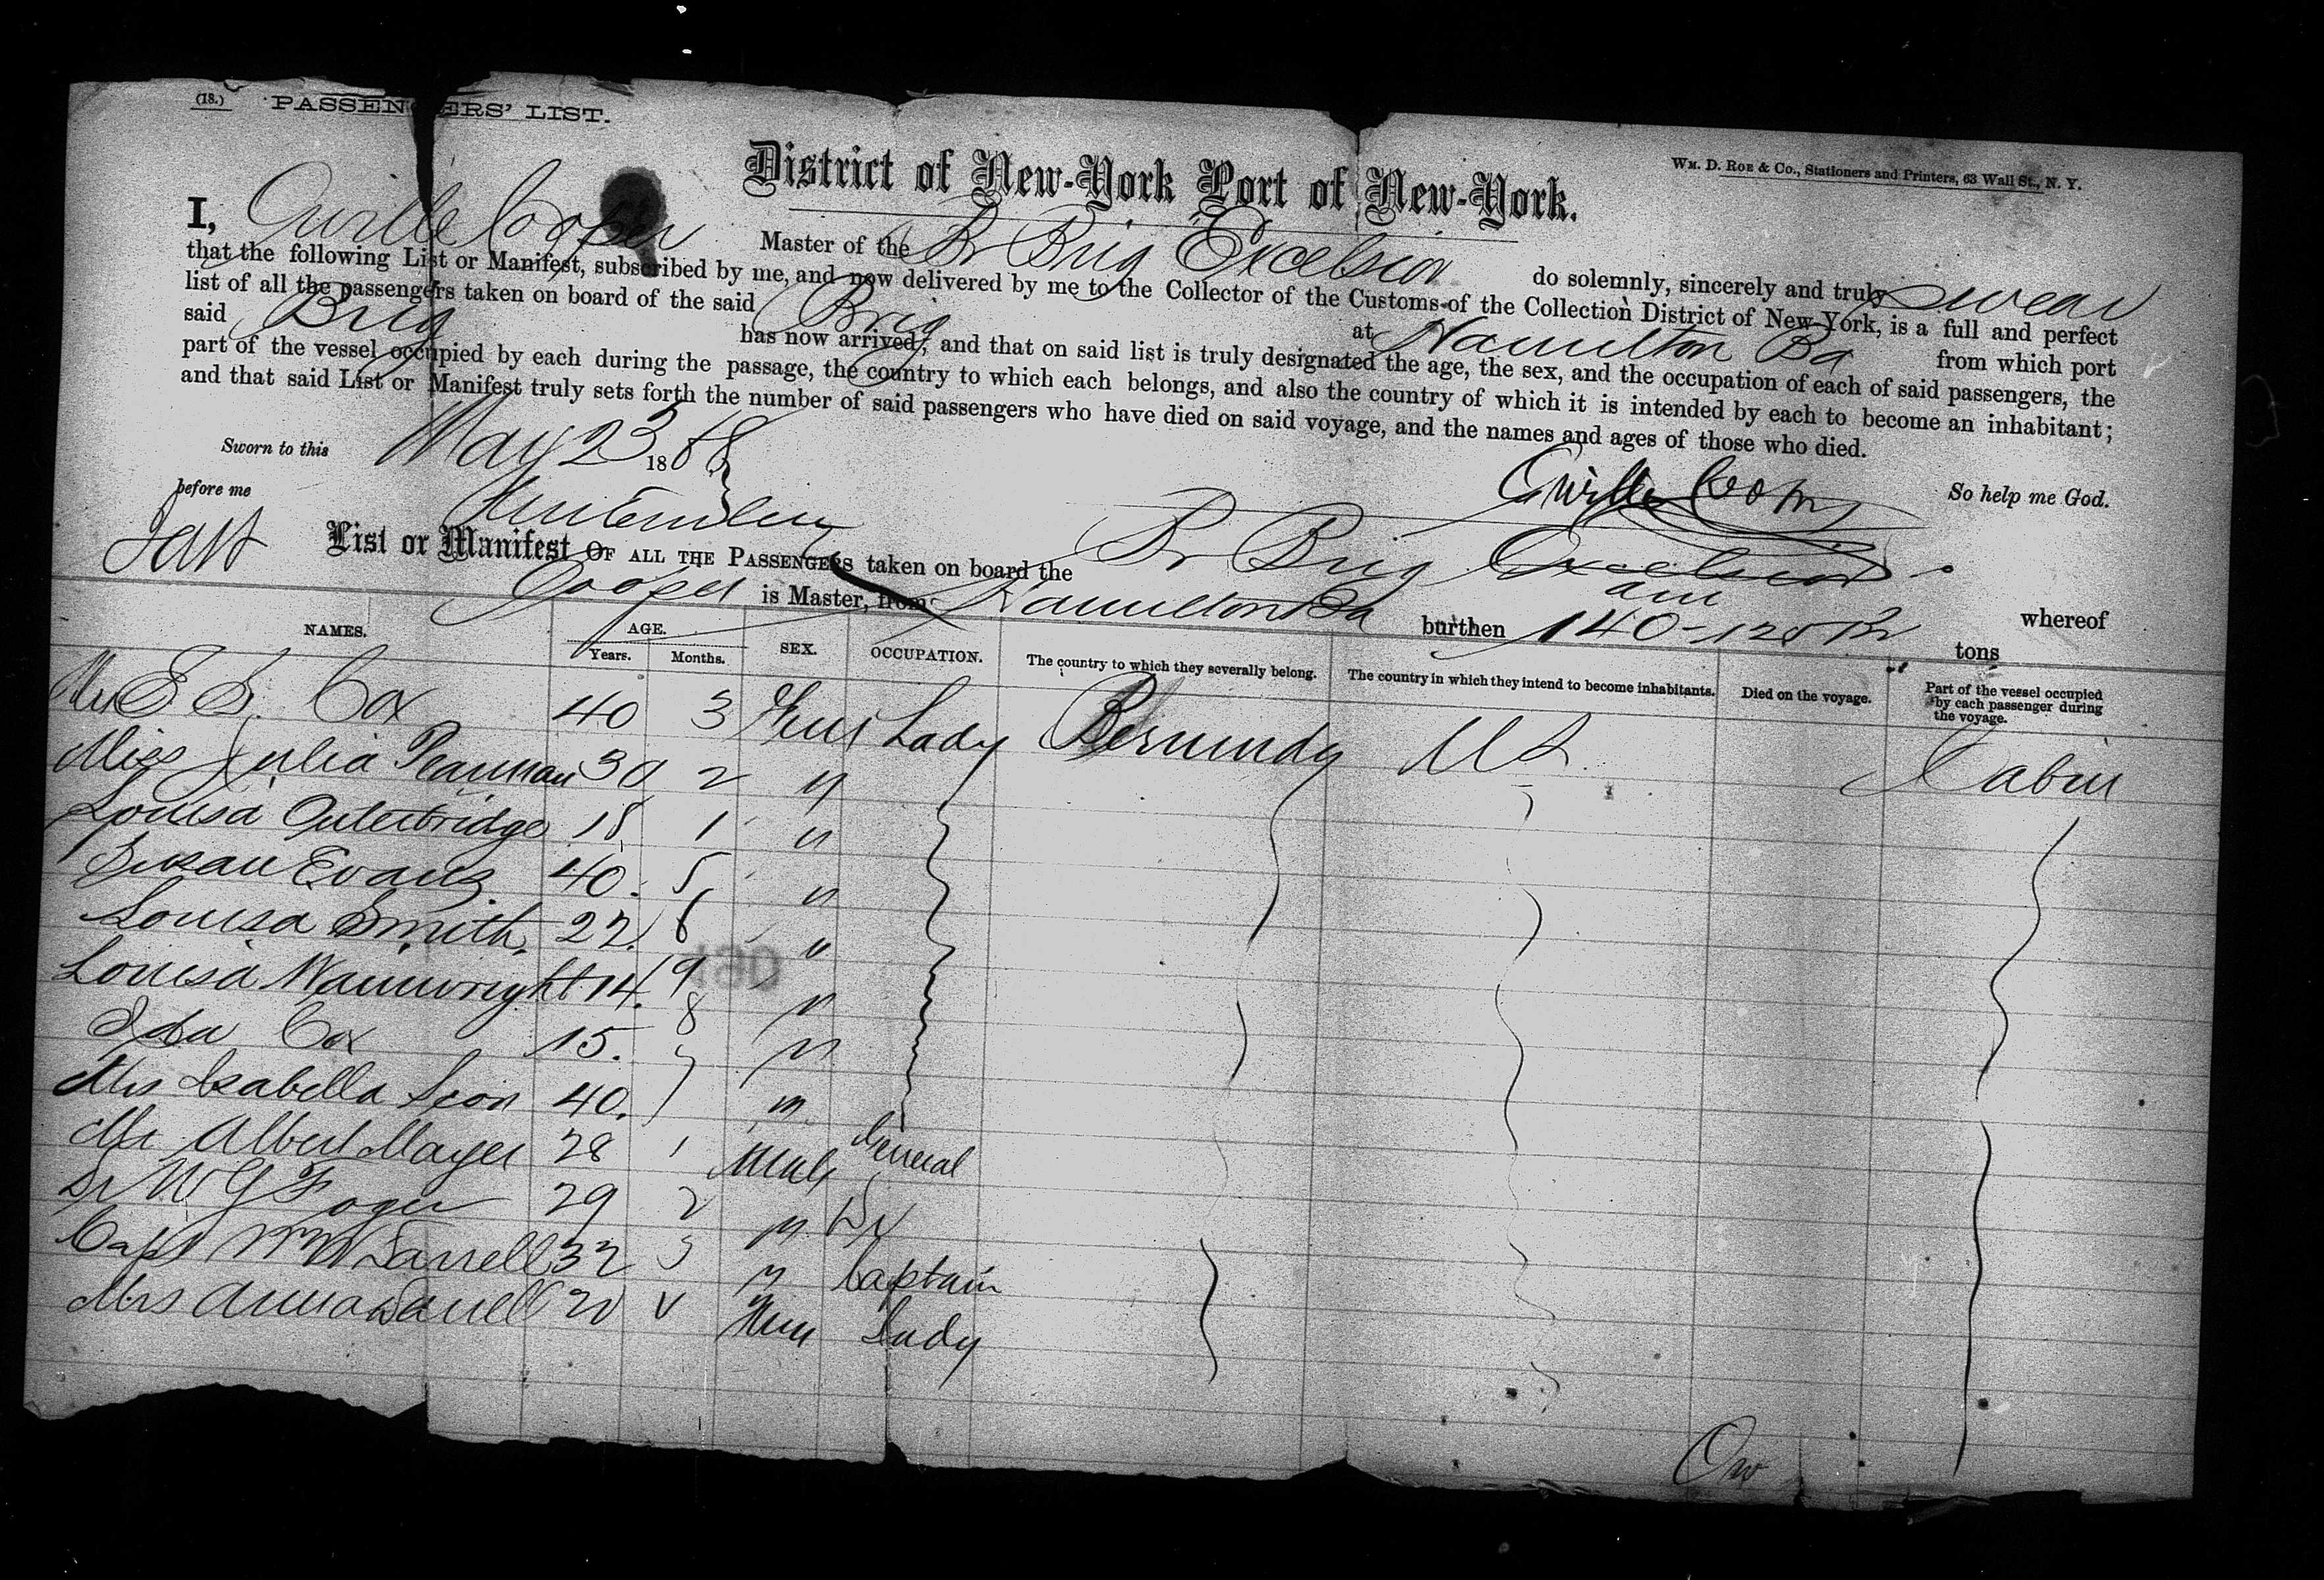 (18.) PASSENGERS' LIST.
WM. D. ROE & CO., Stationers and Printers, 63 Wall St., N. Y.
District of New-York Port of New-York.
I, Cooper Master of the Br Brig Excelsior do solemnly, sincerely and truly swear
that the following List or Manifest, subscribed by me, and now delivered by me to the Collector of the Customs of the Collection District of New-York, is a full and perfect
list of all the passengers taken on board of the said Brig at Hamilton Ba from which port
said Brig has now arrived, and that on said list is truly designated the age, the sex, and the occupation of each of said passengers, the
part of the vessel occupied by each during the passage, the country to which each belongs, and also the country of which it is intended by each to become an inhabitant;
and that said List or Manifest truly sets forth the number of said passengers who have died on said voyage, and the names and ages of those who died.
Sworn to this May 23 1868 So help me God.
before me
List or Manifest OF ALL THE PASSENGERS taken on board the Br Brig Excelsior whereof
Cooper is Master, from Hamilton Ba burthen 140 tons
NAMES. AGE. Years. Months. SEX. OCCUPATION. The country to which they severally belong. The country in which they intend to become inhabitants. Died on the voyage. Part of the vessel occupied by each passenger during the voyage.
S. Cox 40 3 Lady Bermuda U S. Cabin
Miss Julia Pearman 30 2 "
Louisa Outerbridge 18 1 "
Susan Evans 40 5 "
Louisa Smith 22 6 "
Louisa Wainwright 14 9 "
Ida Cox 15. 8 "
Mrs Isabella 40. "
Mr Albert Mayer 28 1 Male General
Dr W G 29 2 " Dr
Capt 32 5 " Captain
Mrs Anna 20 Lady